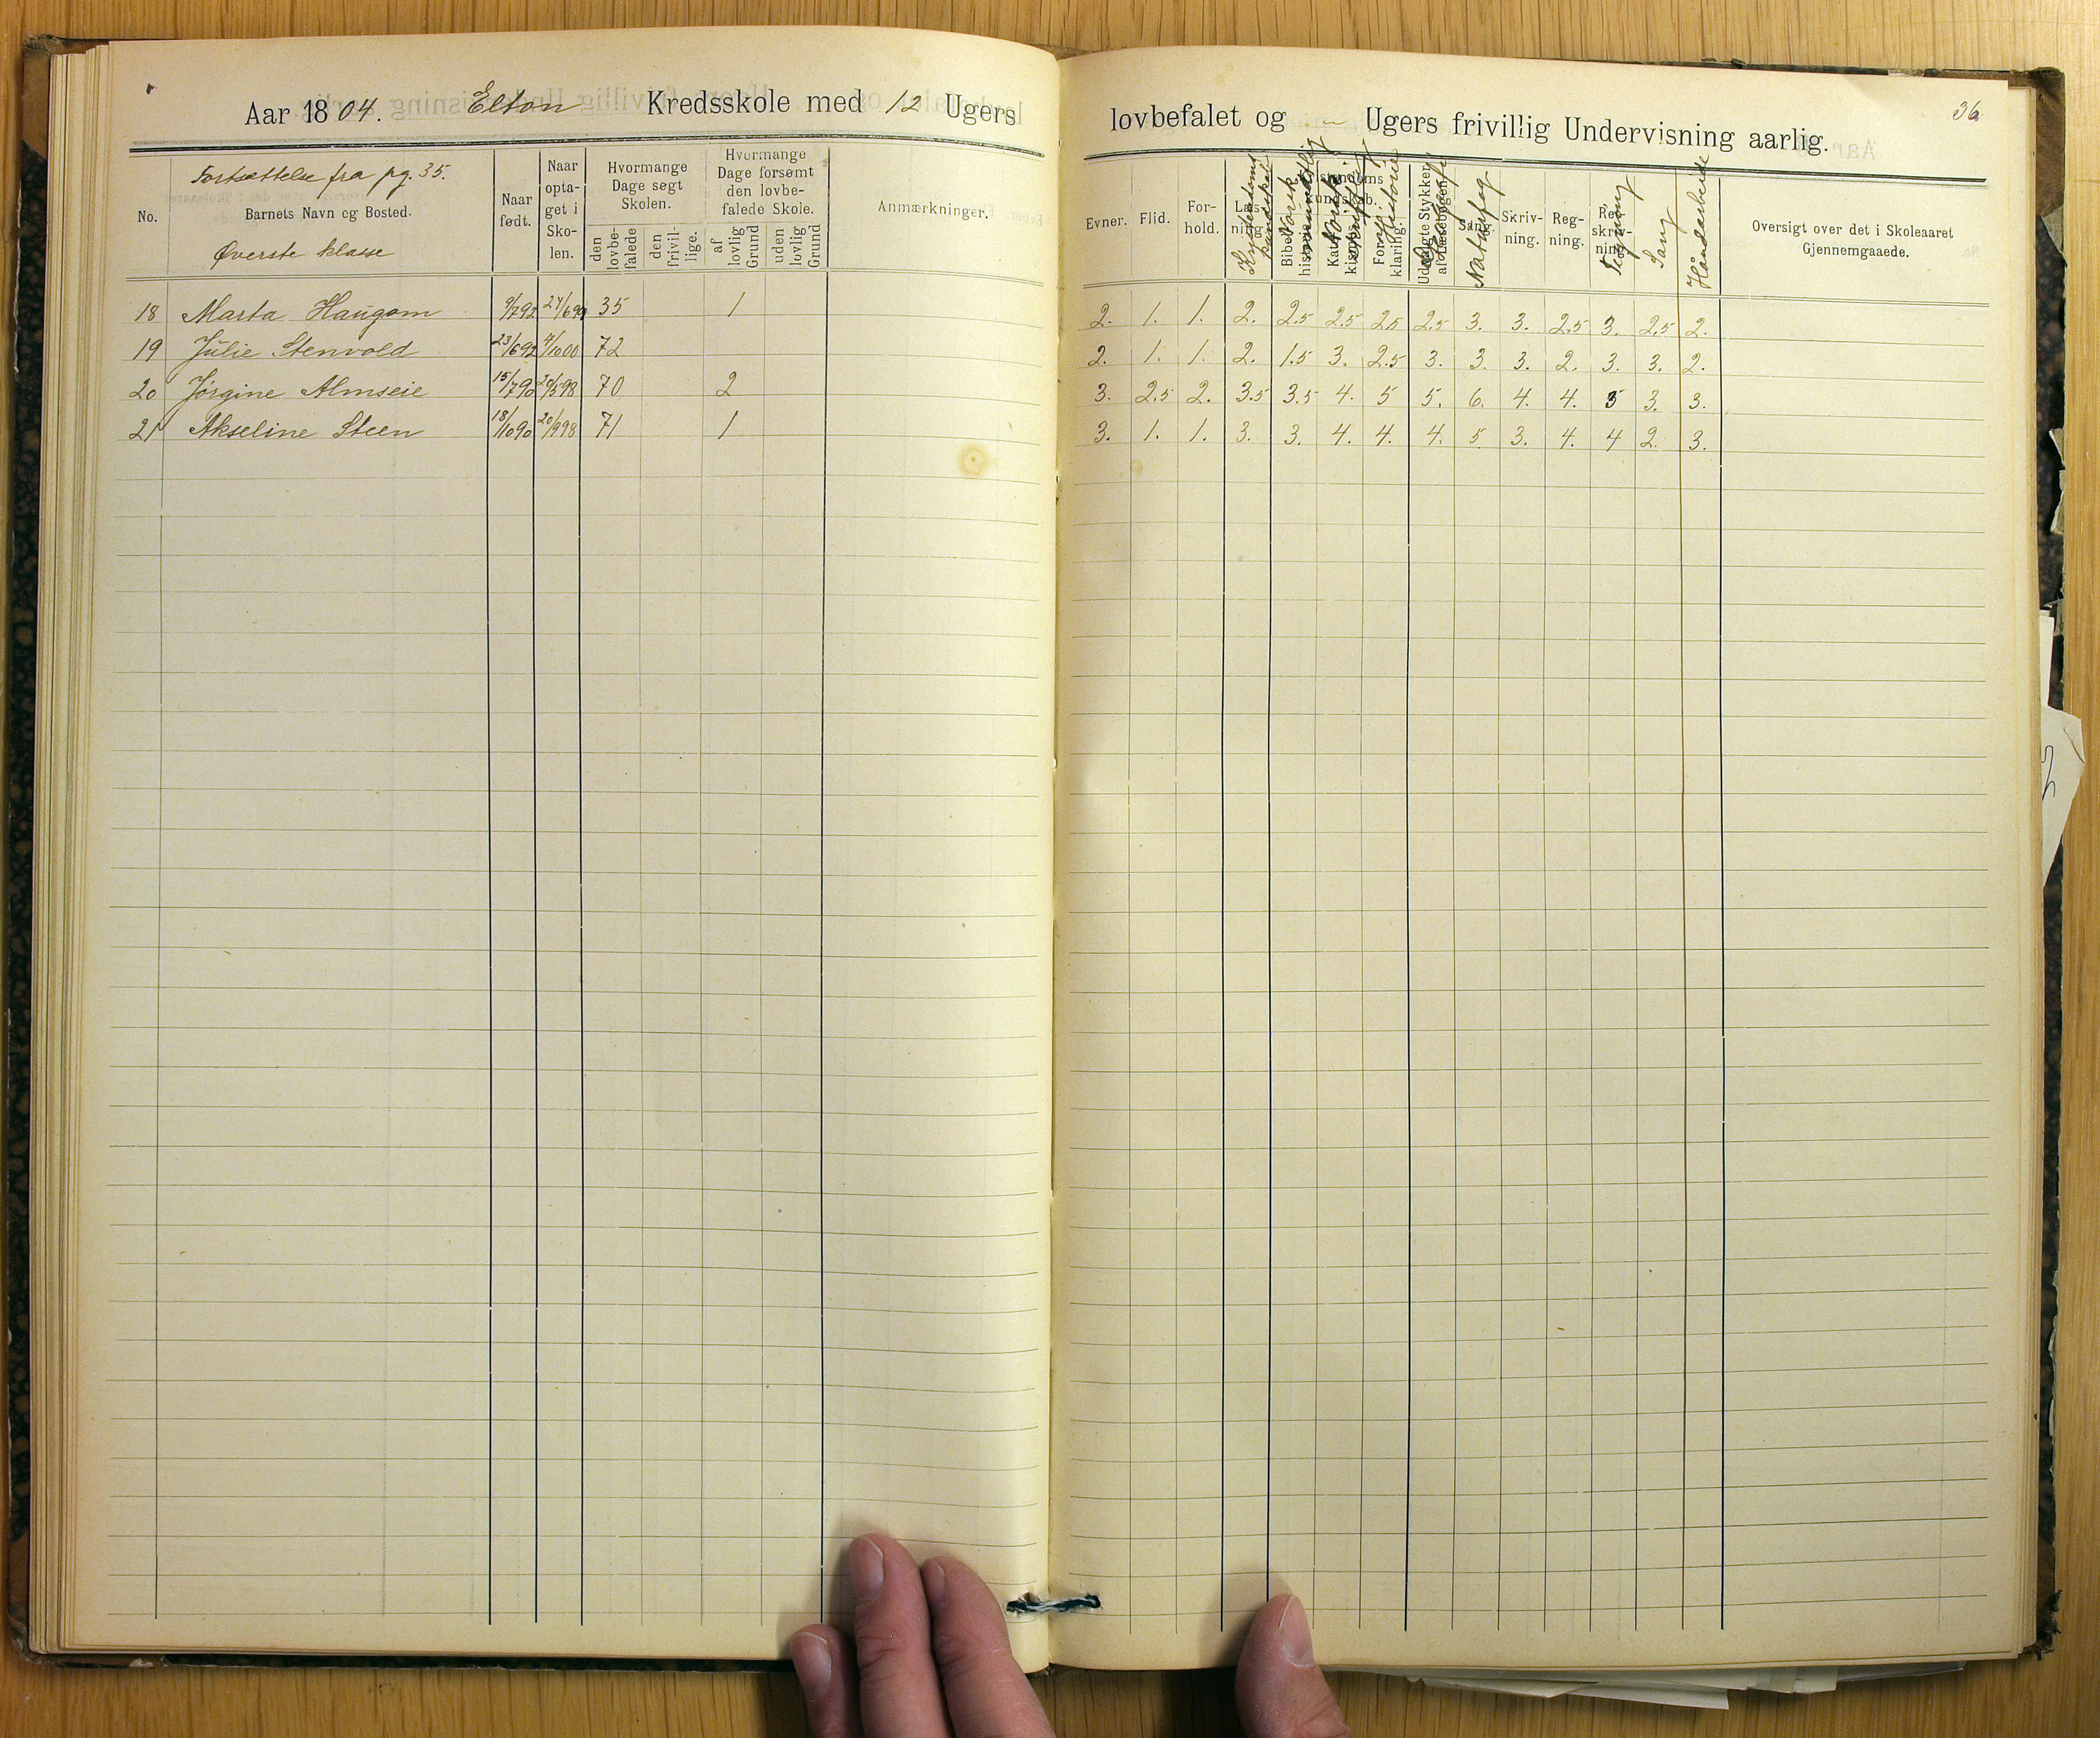 Aar 1804. Elton Kredsskole med 12 Ugers lovbefalet og „ Ugers frivillig Undervisning aarlig.
36
No.
Fortsættelse fra pg. 35.
Barnets Navn og Bosted.
Øverste klasse
Naar født.
Naar opta-
get i
Sko-
len.
Hvormange
Dage søgt
Skolen.
den lovbe-
falede
den frivil-
lige.
Hvormange
Dage forsømt
den lovbe-
falede Skole.
af lovlig Grund
uden lovlig Grund
Anmærkninger.
Evner.
Flid.
For-
hold.
Læs-
ning.
Kristendoms
kundskab.
Norsk mundtlig
Norsk skriftlig
Historie
Forklaring.
Udvalgte Stykker af Læsebogen.
Sang.
Naturfag
Skriv-
ning.
Reg-
ning.
Ret-
skriv-
ning.
Tegning
Sang
Håndarbeide
Oversigt over det i Skoleaaret
Gjennemgaaede.
18 Marta Haugom 9/7 92 27/6 99 35 1 2. 1. 1. 2. 2.5 2.5 2.5 2.5 3. 3. 2.5 3. 2.5 2.
19 Julie Stenvold 23/6 92 4/10 00 72 2. 1. 1. 2. 1.5 3. 2.5 3. 3. 3. 2. 3. 3. 2.
20 Jørgine Almseie 15/7 90 20/5 98 70 2 3. 2.5 2. 3.5 3.5 4. 5 5. 6. 4. 4. 5 3. 3.
21 Akseline Steen 18/10 90 20/9 98 71 1 3. 1. 1. 3. 3. 4. 4. 4. 5 3. 4. 4 2. 3.